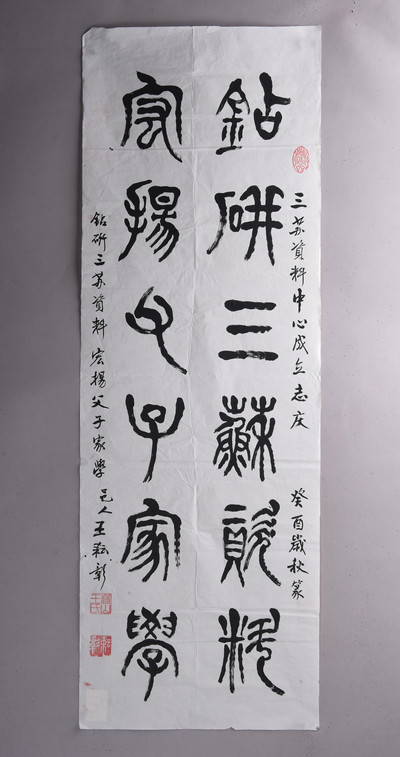 三苏資料中心成立志庆 癸酉歲秋篆
鉆研三蘇資料
宏揚父子家學
鉆研三苏資料 宏揚父子家學 邑人王